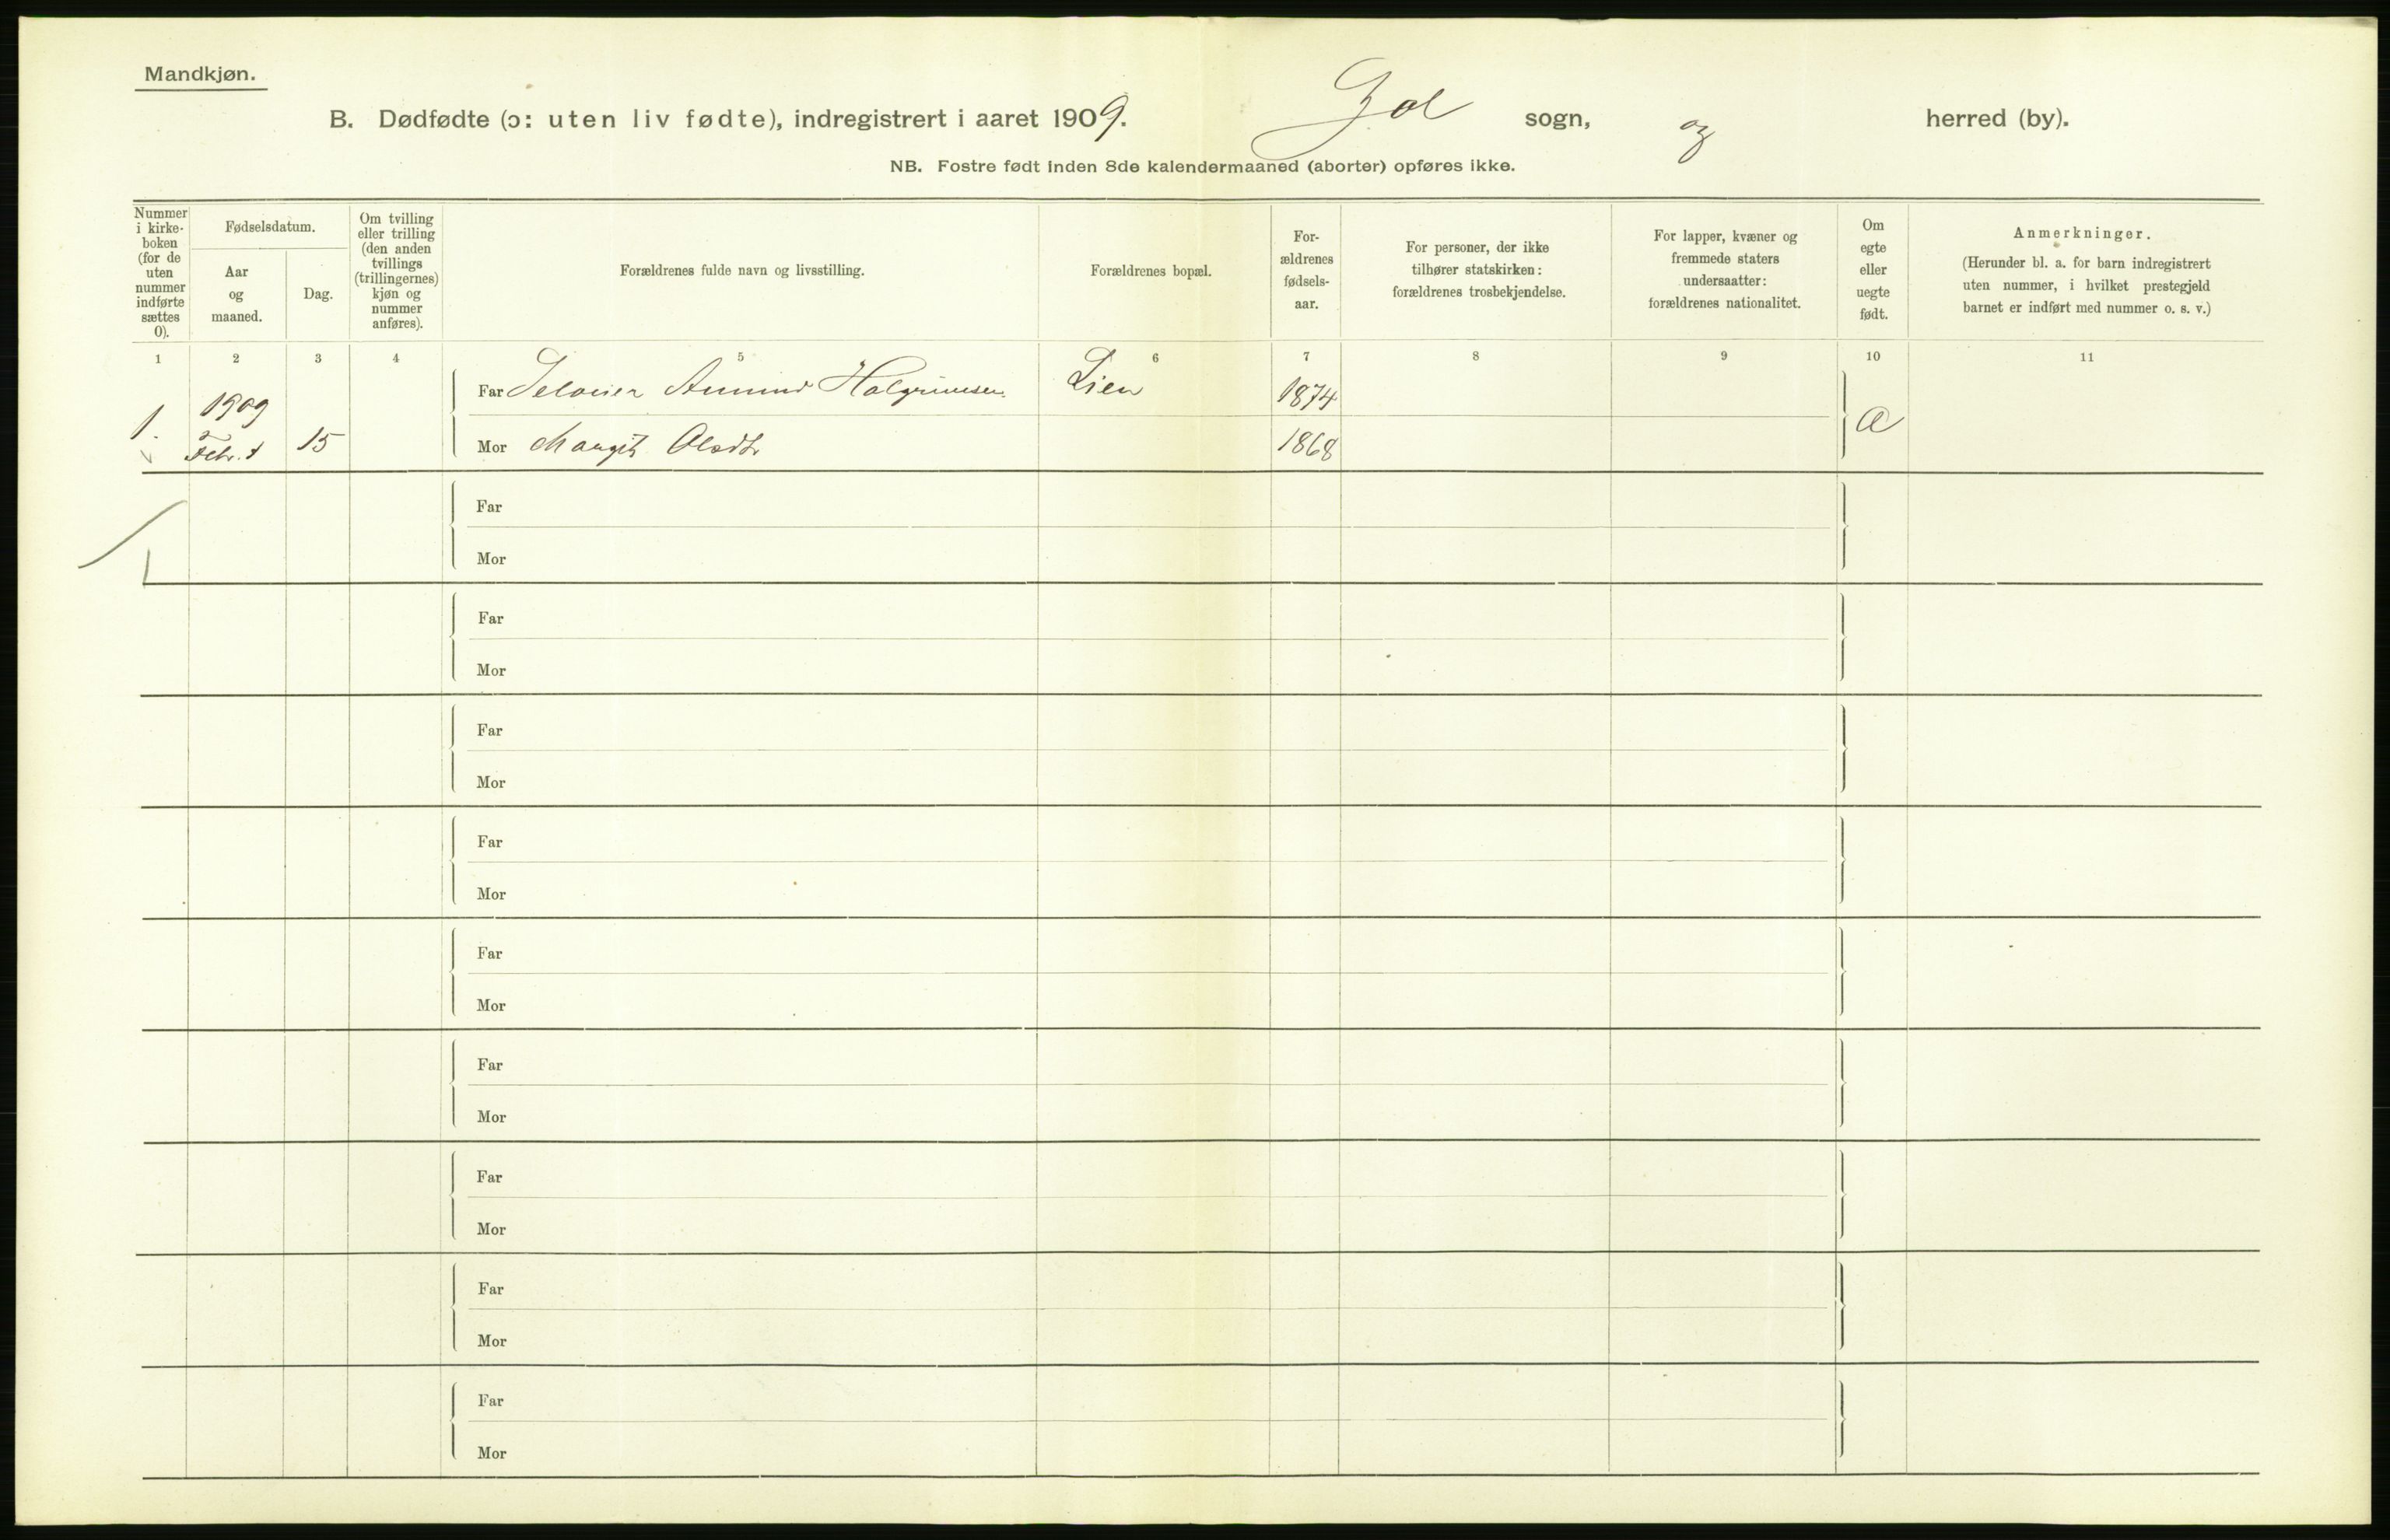 Mandkjøn.
B. Dødfødte (ɔ: uten liv fødte), indregistrert i aaret 1909. Gol sogn, og herred (by).
NB. Fostre født inden 8de kalendermaaned (aborter) opføres ikke.
Nummer i kirke-boken (for de uten nummer indførte sættes 0).
Fødselsdatum.
Aar og maaned.
Dag.
Om tvilling eller trilling (den anden tvillings (trillingernes) kjøn og nummer anføres).
Forældrenes fulde navn og livsstilling.
Forældrenes bopæl.
For-ældrenes fødsels-aar.
For personer, der ikke tilhører statskirken: forældrenes trosbekjendelse.
For lapper, kvæner og fremmede staters undersaatter: forældrenes nationalitet.
Om egte eller uegte født.
Anmerkninger.
(Herunder bl. a. for barn indregistrert uten nummer, i hvilket prestegjeld barnet er indført med nummer o. s. v.)
1 2 3 4 5 6 7 8 9 10 11
1. 1909 Febr. 15
Far Selveier Amund Halgrimsen Lien 1874
Mor Margit Olsdtr 1868
Far
Mor
Far
Mor
Far
Mor
Far
Mor
Far
Mor
Far
Mor
Far
Mor
Far
Mor
Far
Mor